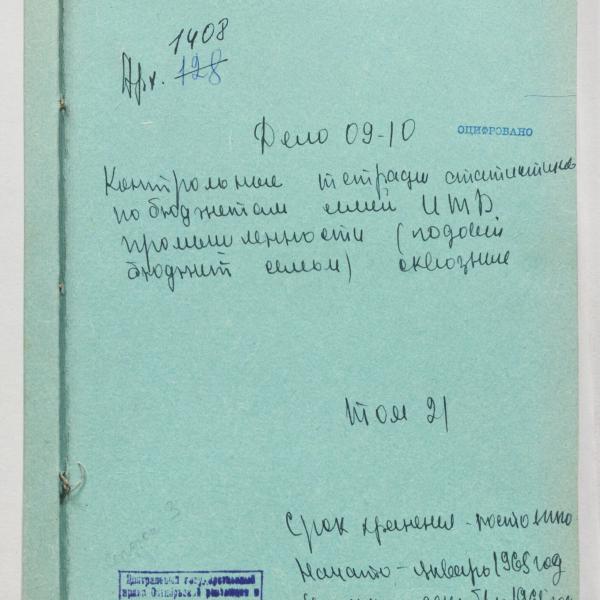 1408
Арх. 128
Дело 09-10
ОЦИФРОВАНО
Контрольные тетради статистиков
по бюджетам семей ИТР
промышленности (годовой
бюджет семьи) сквозные
Том 21
Срок хранения - постоянно
Начато - январь 1965 год
Центральный государственный
архив Октябрьской революции и